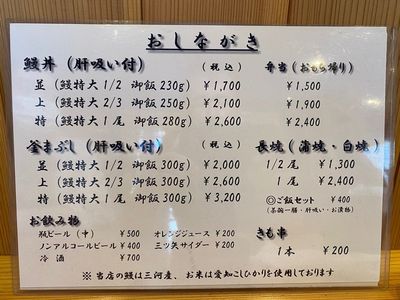 おしながき
鰻丼（肝吸い付）　（税込）　弁当（おもち帰り）
並（鰻特大 1/2　御飯 230g）　￥1,700　￥1,500
上（鰻特大 2/3　御飯 250g）　￥2,100　￥1,900
特（鰻特大 1 尾　御飯 280g）　￥2,600　￥2,400
釜まぶし（肝吸い付）　（税込）　長焼（蒲焼・白焼）
並（鰻特大 1/2　御飯 300g）　￥2,000　1/2 尾　￥1,300
上（鰻特大 2/3　御飯 300g）　￥2,600　1 尾　￥2,400
特（鰻特大 1 尾　御飯 300g）　￥3,200　◎ご飯セット　￥400
（茶碗一膳・肝吸い・お漬物）
お飲み物　きも串
瓶ビール（中）　￥500　オレンジジュース　￥200　1本　￥200
ノンアルコールビール　￥400　三ツ矢サイダー　￥200
冷　酒　￥700
※ 当店の鰻は三河産、お米は愛知こしひかりを使用しております